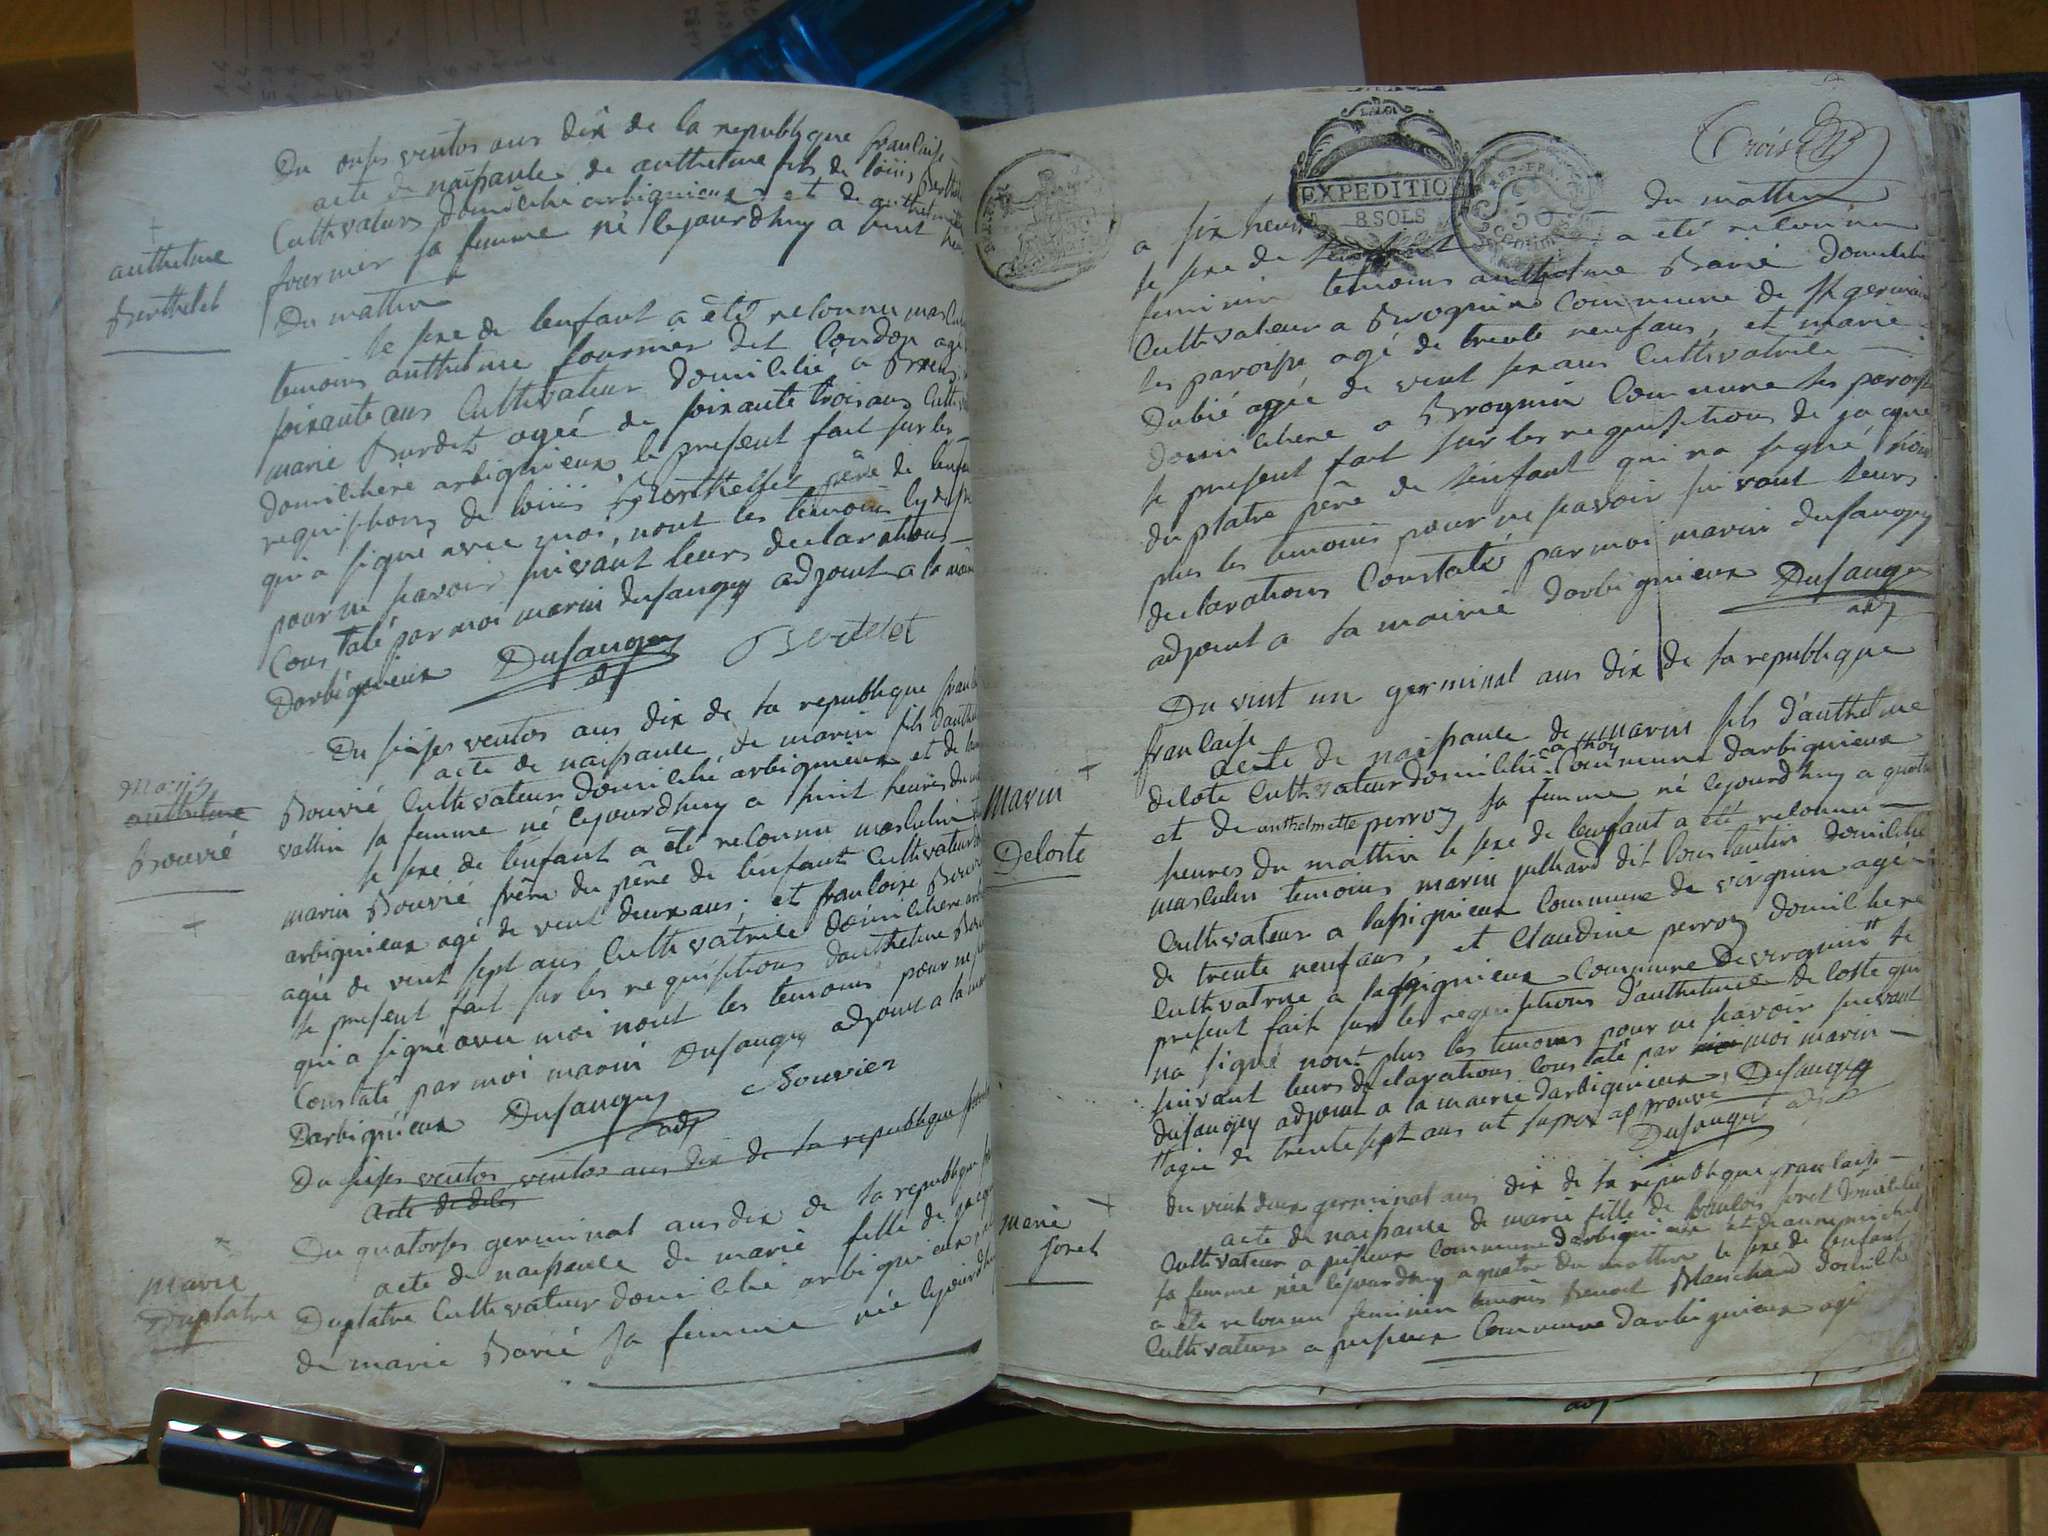 Du onses ventos ans dix de la republique francaise
acte de naissance de anthelme fils de loiiis
Cultivateurs domicilié arbignieux et de
fournier sa femme né lejourdhuy a huit
Du mattin
le sexe de lenfant a été reconnu
temoins anthelme fournier dit Condon
soixante ans Cultivateur domicilié a
marie Burdet ageé de soixante trois ans
domiciliere arbignieux le present fait sur les
requisitions de loiiis Berthellet père de
qui a signé avec moi, nont les temoins
pour ne scavoir suivant leurs declarations
Constaté par moi marin dusaugey adjoint a la
Darbignieux Dusaugey Bertelet
adj
anthelme
Berthelet
Du seises ventos ans dix de la republique
acte de naissance de marin fils
Bouvié Cultivateur domicilié arbignieux et de
vattin sa femme né lejourdhuy a huit heures du
le sexe de lenfant a été reconnu masculin
marin Bouvié frère du père de lenfant Cultivateur
arbignieux agé de vent deux ans, et francoise
ageé de vent sept ans Cultivatrice domiciliere
le present fait sur les requisitions danthelme
qui a signé avec moi nont les temoins pour ne
Constaté par moi marin Dusaugey adjoint a la
Darbignieux Dusaugey Bouvier
adj
marin
anthelme
Bouvié
Du seises ventos ventos ans dix de la republique
acte de
Du quatorses germinal ans dix de la republique
acte de naissance de marie fille de
Duplatre Cultivateur domicilié arbignieux
de marie Bavié sa femme née lejourdhuy
marie
Duplatre
Trois
LA LOI
EXPEDITION
8 SOLS
REP. FRA.
50
a six heures du mattin
le sexe de lenfant a été reconnu
feminin temoins anthelme Bavié domicilié
Cultivateur a Brognin Commune de St germain
les paroisse agé de trente neuf ans, et marie
Dubié ageé de vent six ans Cultivatrice
domiciliere a Brognin Commune les paroisse
le present fait sur les requisitions de jacque
duplatre père de lenfant qui na signé non
plus les temoins pour ne scavoir suivant leurs
declarations Constaté par moi marin dusaugey
adjoint a la mairie darbignieux Dusaugey
adj
Du vint un germinal ans dix de la republique
francaise
acte de naissance de marin fils d'anthelme
delote Cultivateur domicilié a thoy Commune darbignieux
et de anthelmette perroz sa femme né lejourdhuy a quatre
heures du mattin le sexe de lenfant a été reconnu
masculin temoins marin julliard dit Constantin domicilié
Cultivateur a lassignieux Commune de virignin agé
de trente neuf ans, et Claudine perroz domiciliere
Cultivatrice a lassignieux Commune de virignin le
present fait sur les requisitions d'anthelme de loste qui
na signé nont plus les temoins pour ne scavoir suivant
suivant leurs declarations Constaté par moi moi marin
dusaugey adjoint a la mairie darbignieux, Dusaugey
ageé de trente sept ans ut supra approuvé adj
Dusaugey
marin
Deloste
du vint deux germinal ans dix de la republique francaise
acte de naissance de marie fille de francois joret domicilié
Cultivateur a peysieux Commune darbignieux et de anne michel
sa femme née lejourdhuy a quatre du mattin le sexe de lenfant
a été reconnu feminin temoins Benoit Blanchard domicilié
Cultivateur a peysieux Commune darbignieux agé
marie
joret
adj